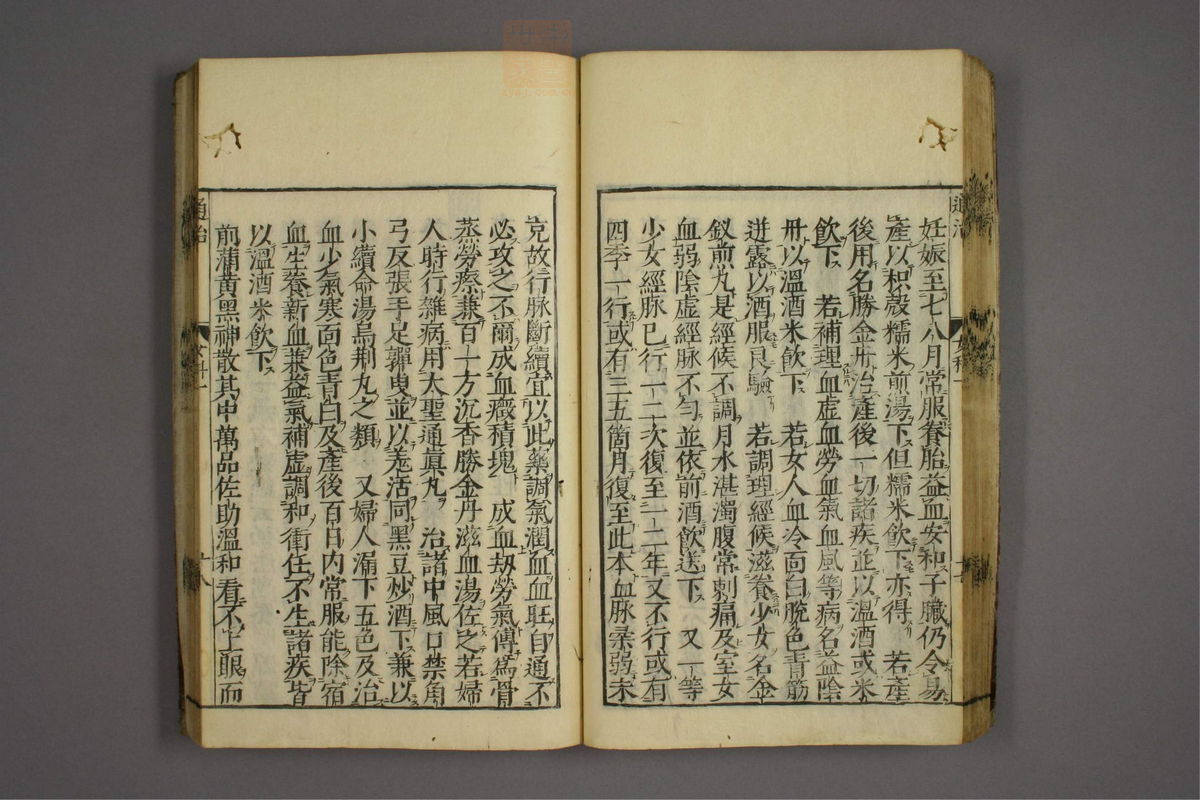 妊娠至七八月常服養胎益血安和子臓仍令易
產以枳殼糯米煎湯下但糯米飲下亦得　若產
後用名勝金丹治產後一切諸疾並以溫酒或米
飲下　若補理血虛血勞血氣血風等病名益陰
丹以溫酒米飲下　若女人血冷面白脫色青筋
迸露以酒服良驗　若調理經候滋養少女名金
釵煎丸是經候不調月水湛濁腹常刺痛及室女
血弱陰虛經脉不勻並依前酒飲送下　又一等
少女經脉已行一二次復至一二年又不行或有
四季一行或有三五箇月復至此本血脉柔弱未
充故行脉斷續宜以此藥調氣潤血血旺自通不
必攻之不爾成血癥積塊　成血劫勞氣傳為骨
蒸勞瘵兼百一方沉香勝金丹滋血湯佐之若婦
人時行雜病用太聖通真丸　治諸中風口禁角
弓反張手足嚲曳並以羗活同黑豆炒酒下兼以
小續命湯烏荆丸之類　又婦人漏下五色及治
血少氣寒面色青白及產後百日內常服能除宿
血生養新血兼益氣補虛調和衝任不生諸疾皆
以溫酒米飲下
前蒲黃黑神散其中萬品佐助溫和看不上眼而
通治
女科一
十八